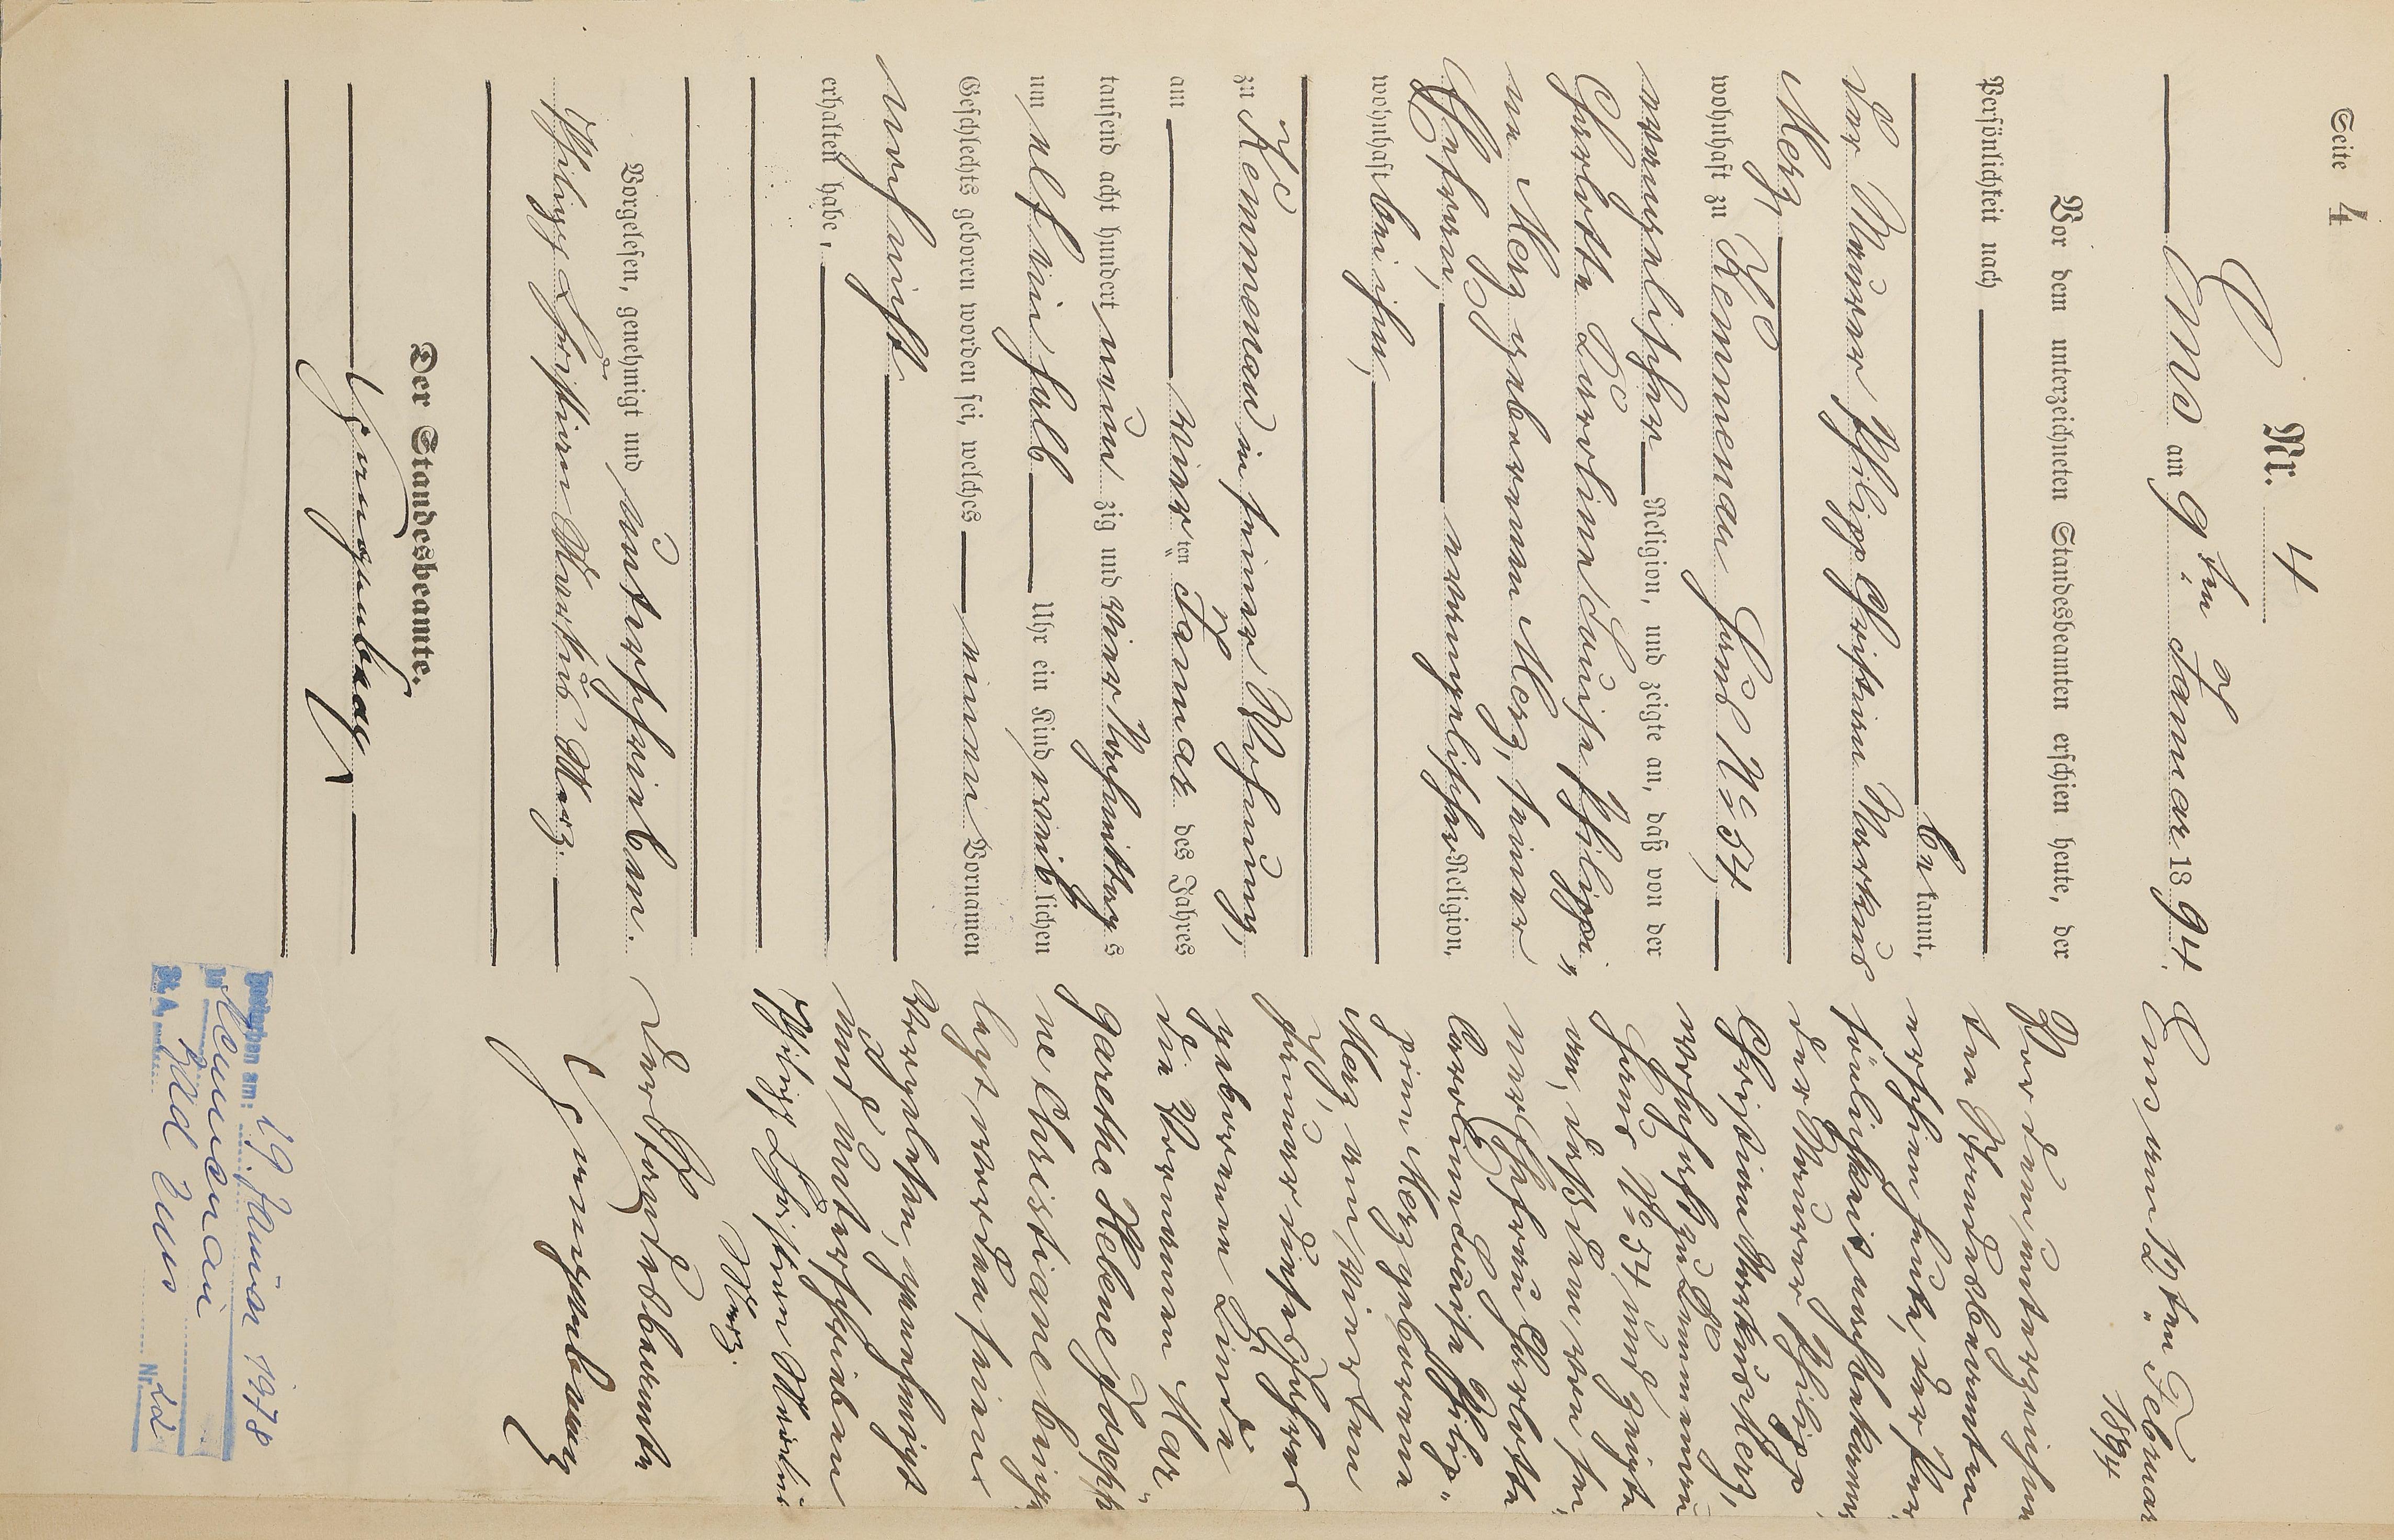 Seite 4
Nr. 4
Ems am 9ten Januar 1894.
Vor dem unterzeichneten Standesbeamten erschien heute, der
Persönlichkeit nach
bekannt,
der Maurer Philipp Christian Markus
Merz,
wohnhaft zu Kemmenau Haus No 54,
evangelischer Religion, und zeigte an, daß von der
Charlotte Karoline Louise Philippi„
ne Merz geborenen Merz, seiner
Ehefrau, evangelischer Religion,
wohnhaft bei ihm,
zu Kemmenau in seiner Wohnung,
am vierten Januar des Jahres
tausend acht hundert neunzig und vier Nachmittags
um elf ein halb Uhr ein Kind weiblichen
Geschlechts geboren worden sei, welches einen Vornamen
noch nicht
erhalten habe.
Vorgelesen, genehmigt und unterschrieben.
Philipp Christian Markus Merz.
Der Standesbeamte.
Ems am 12ten Februar
1894
Vor dem unterzeichne
ten Standesbeamten
erschien heute, der Per
sönlichkeit nach bekannt,
der Maurer Philipp
Christian Markus Merz,
wohnhaft zu Kemmenau
Haus No 54 und zeigte
an, daß dem von sei„
ner Ehefrau Charlotte
Caroline Louise Philip„
pine Merz geborene
Merz, am vierten
Januar dieses Jahres
geborenen Kinde
die Vornamen Mar„
garethe Helene Josephi
ne Christiane beige
legt worden seien
Vorgelesen, genehmigt
und unterschrieben
Philipp Christian Markus
Merz.
Der Standesbeamte
Gestorben am: 19. Januar 1978
in Kemmenau
St. A. Bad Ems Nr. 22